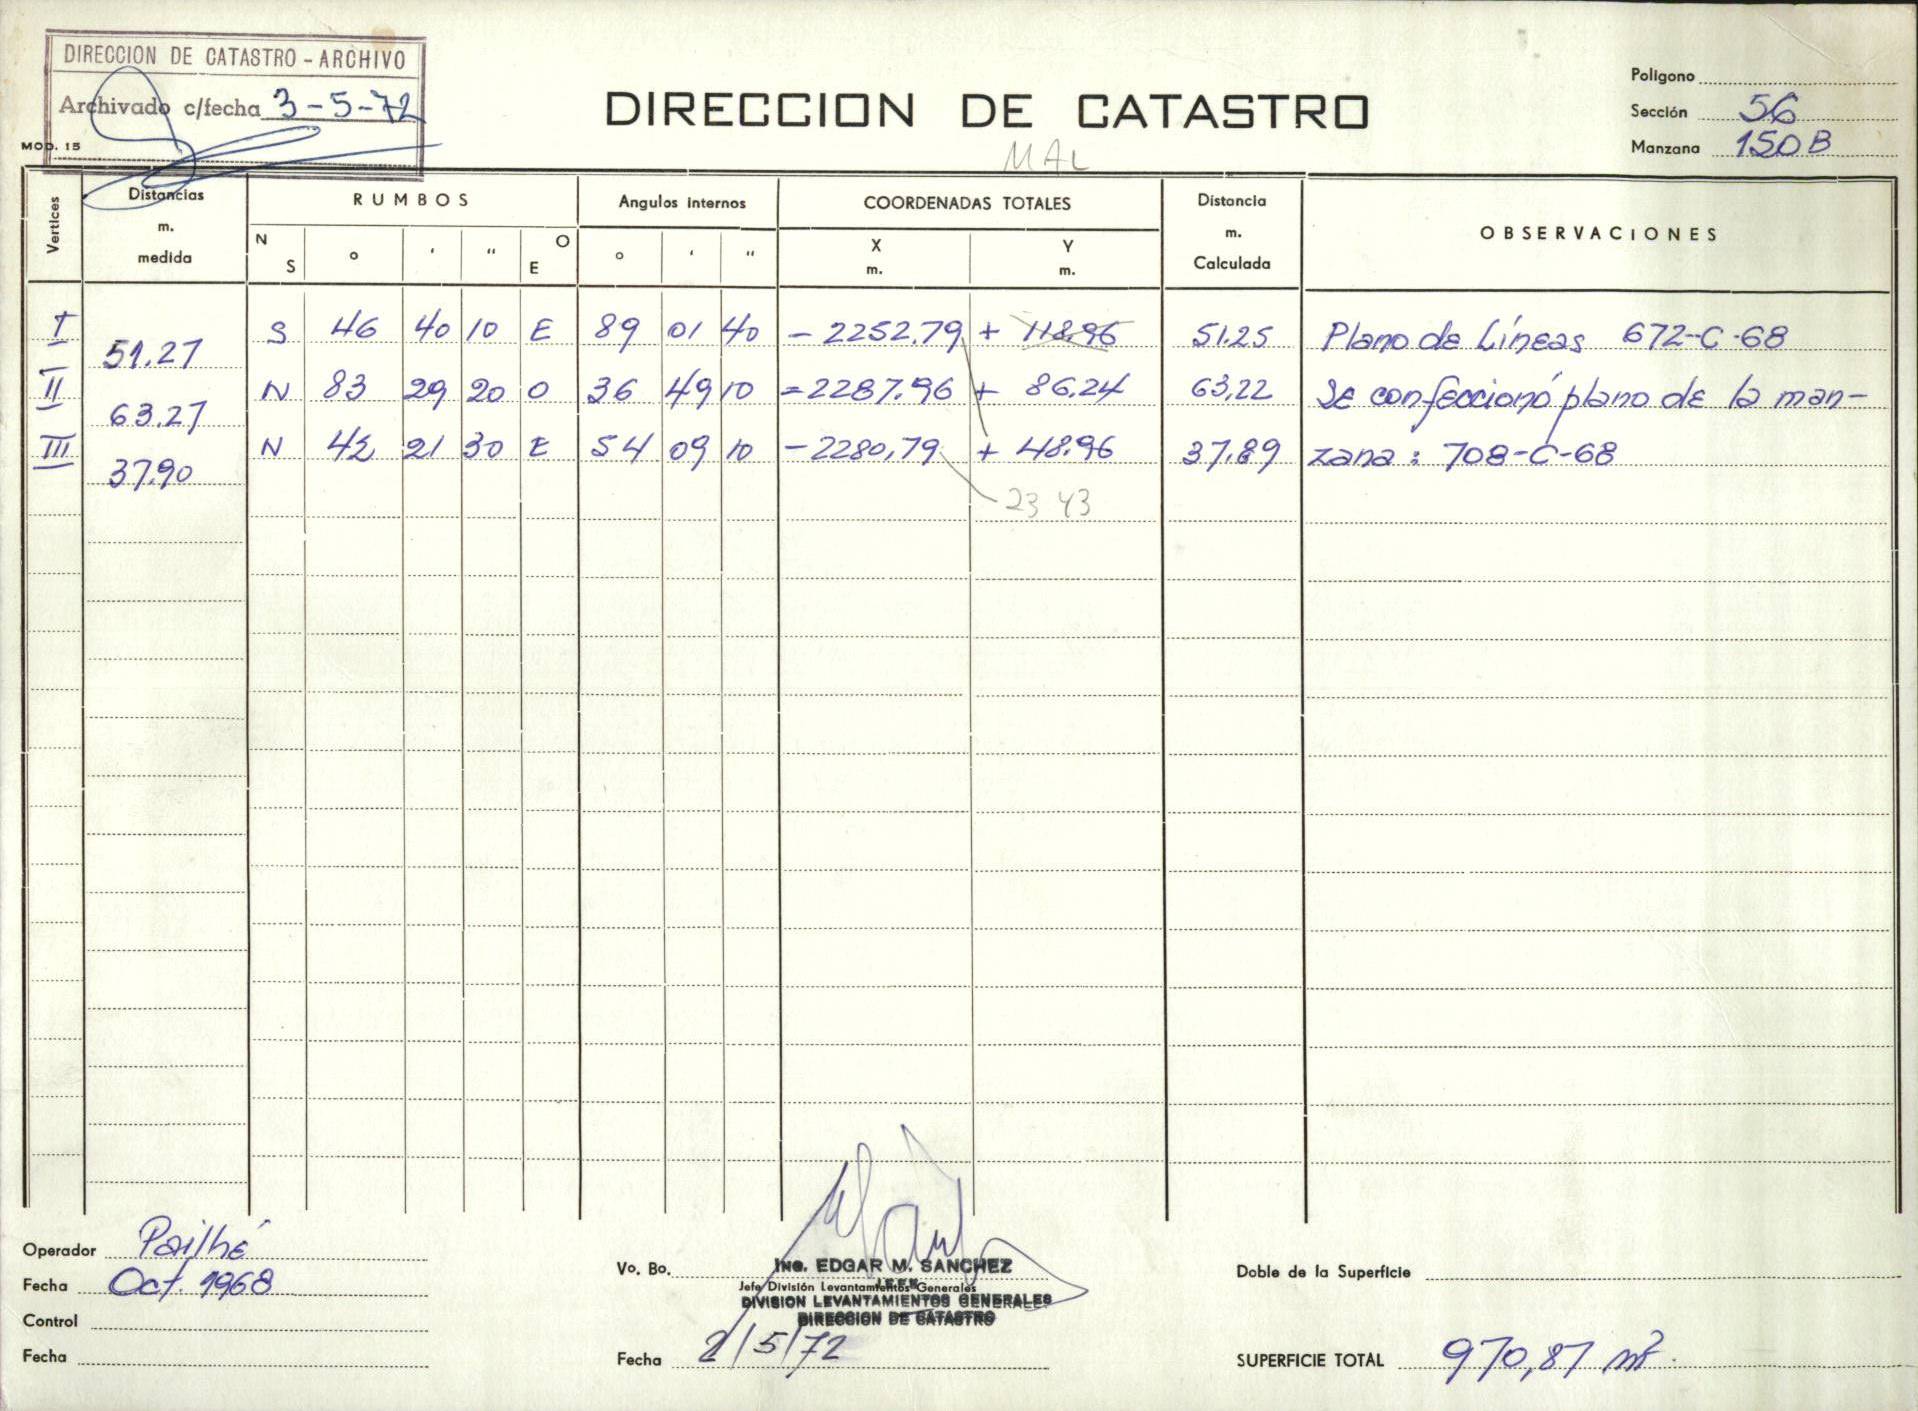 DIRECCION DE CATASTRO - ARCHIVO
Archivado c/fecha 3-5-72
MOD. 15
DIRECCION DE CATASTRO
MAL
Polígono
Sección 56
Manzana 150B
Vertices
Distancias m. medida
RUMBOS
N S ° ' " O E
Angulos internos
° ' "
COORDENADAS TOTALES
X m. Y m.
Distancia m. Calculada
OBSERVACIONES
I S 46 40 10 E 89 01 40 - 2252.79 + 118.96 51.25 Plano de Líneas 672-C-68
51.27
II N 83 29 20 O 36 49 10 = 2287.96 + 86.24 63.22 Se confeccionó plano de la man-
63.27
III N 42 21 30 E 54 09 10 - 2280,79 + 48.96 37.89 zana : 708-C-68
37.90
23 43
Operador Pailhé
Fecha Oct. 1968
Control
Fecha
Vo. Bo.
ING. EDGAR M. SANCHEZ
JEFE
Jefe División Levantamientos Generales
DIVISION LEVANTAMIENTOS GENERALES
DIRECCION DE CATASTRO
Fecha 2/5/72
Doble de la Superficie
SUPERFICIE TOTAL 970,87 m².